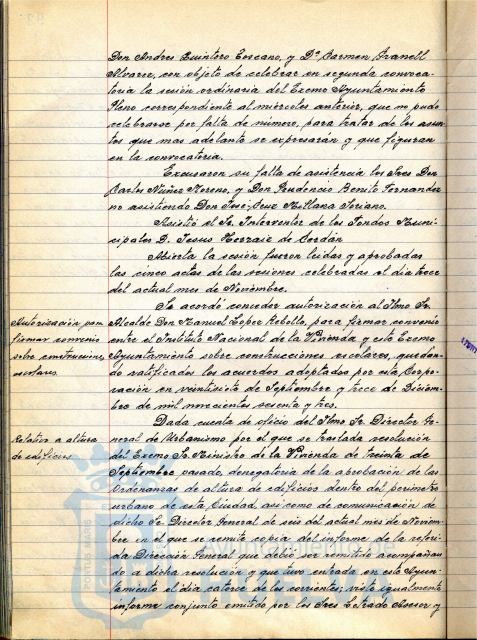 Don Andres Quintero Toscano, y Dª Carmen Pranell
Alvarez, con objeto de celebrar en segunda convoca-
toria la sesión ordinaria del Excmo Ayuntamiento
Pleno correspondiente al miercoles anterior, que no pudo
celebrarse por falta de número, para tratar de los asun-
tos que mas adelante se expresarán y que figuran
en la convocatoria.
Excusaron su falta de asistencia los Sres Don
Carlos Nuñez Moreno, y Don Prudencio Benito Fernandez
no asistiendo Don Jose-Cruz Millana Soriano.
Asistió el Sr. Interventor de los Fondos Muni-
cipales D. Jesus Herraiz de
Abierta la sesión fueron leidas y aprobadas
las cinco actas de las sesiones celebradas el dia trece
del actual mes de Noviembre.
Autorización para
firmar convenio
sobre construcciones
escolares.
Se acordó conceder autorización al Ilmo Sr.
Alcalde Don Manuel Lopez Rebollo, para firmar convenio
entre el Instituto Nacional de la Vivienda y este Excmo
Ayuntamiento sobre construcciones escolares, quedan-
do ratificados los acuerdos adoptados por esta Corpo-
ración en veintisiete de Septiembre y trece de Diciem-
bre de mil novecientos sesenta y tres.
Relativo a altura
de edificios
Dada cuenta de oficio del Ilmo Sr. Director Ge-
neral de Urbanismo por el que se traslada resolución
del Excmo Sr. Ministro de la Vivienda de treinta de
Septiembre pasado, denegatoria de la aprobación de las
Ordenanzas de altura de edificios dentro del perimetro
urbano de esta Ciudad, asi como de comunicación de
dicho Sr. Director General de seis del actual mes de Noviem-
bre en el que se remite copia del informe de la referi-
da Dirección General que debió ser remitido acompañan-
do a dicha resolución y que tuvo entrada en este Ayun-
tamiento el dia catorce de los corrientes; visto igualmente
informe conjunto emitido por los Sres Letrado Asesor y